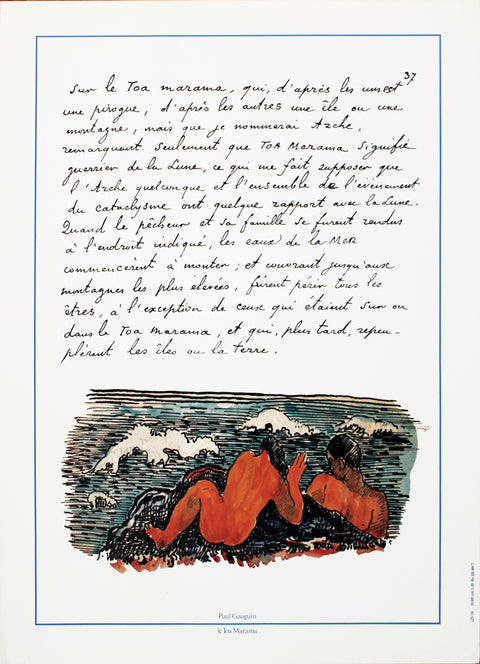 37
Sur le Toa marama, qui, d'après les uns est
une pirogue, d'après les autres une île ou une
montagne, mais que je nommerai Arche,
remarquant seulement que Toa Marama signifie
guerrier de la Lune, ce qui me fait supposer que
l'Arche quelconque et l'ensemble de l'évènement
du cataclysme ont quelque rapport avec la Lune.
Quand le pêcheur et sa famille se furent rendus
à l'endroit indiqué, les eaux de la MER
commencèrent à monter ; et couvrant jusqu'aux
montagnes les plus élevées, firent périr tous les
êtres, à l'exception de ceux qui étaient sur ou
dans le Toa marama, et qui, plus tard, repeu-
plèrent les îles ou la terre.
Paul Gauguin
le Toa Marama